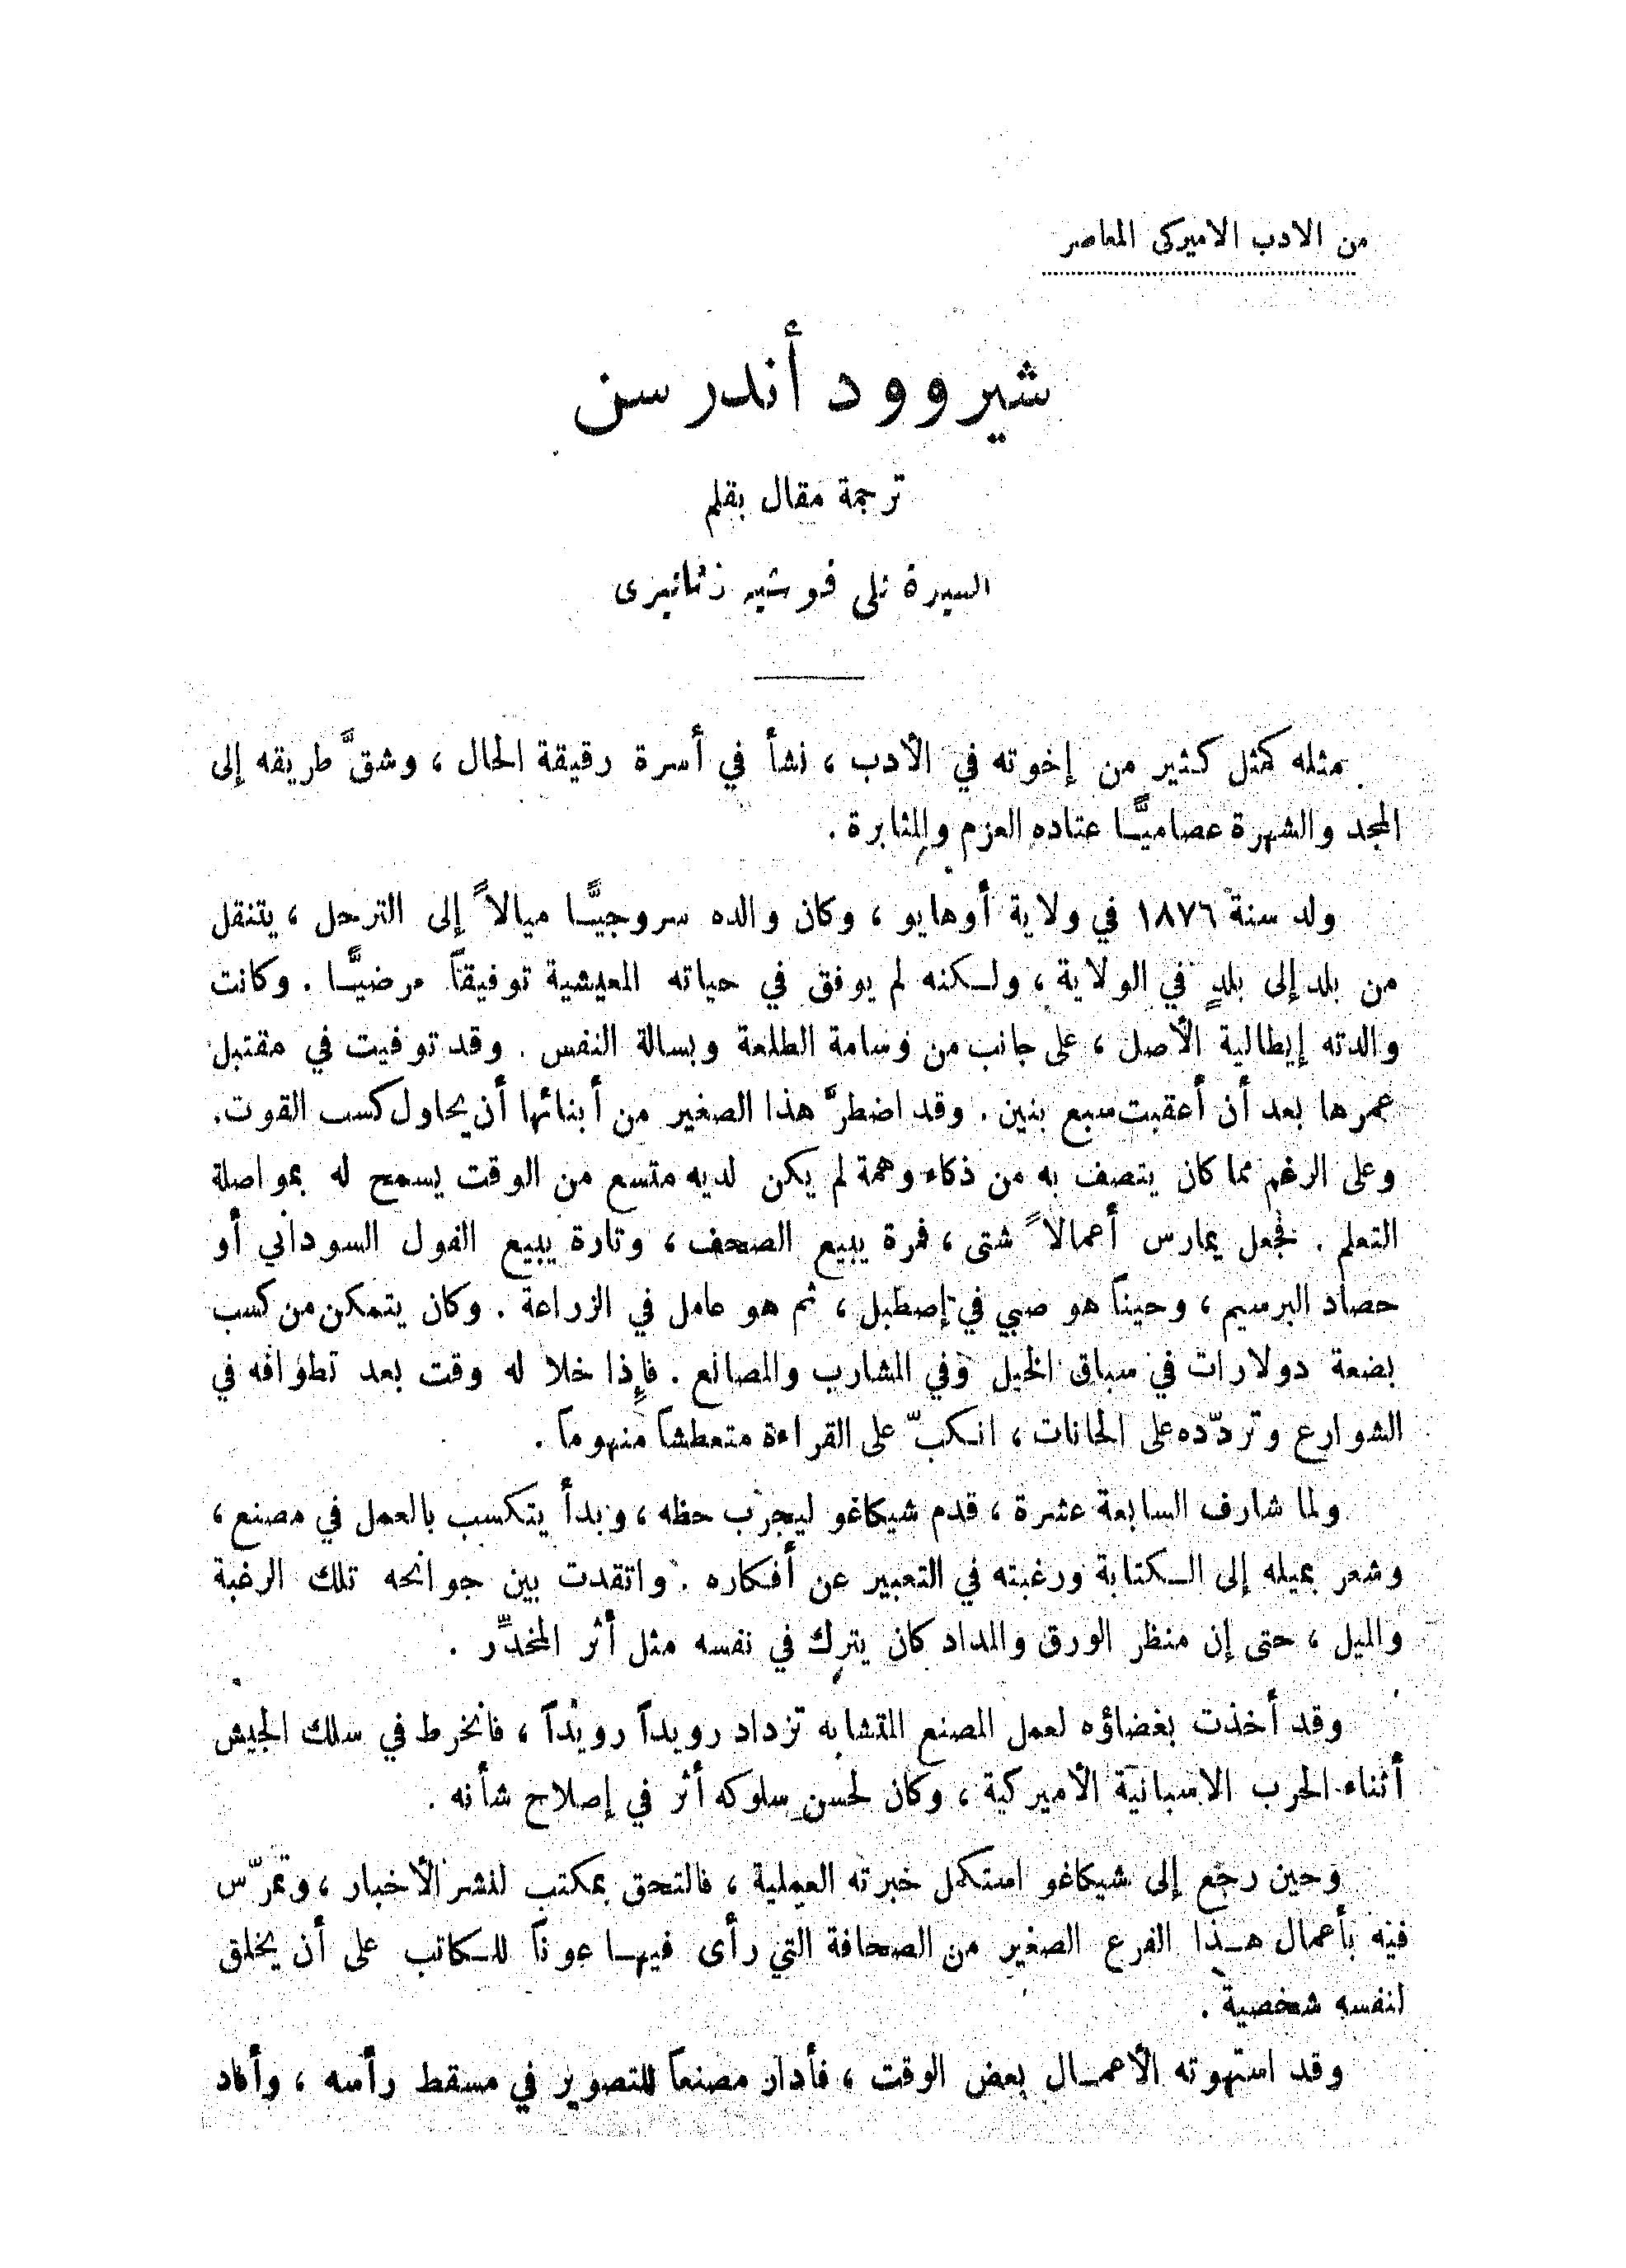 من الادب الاميركى المعاصر
شيروود أندرسن
ترجمة مقال بقلم
السيدة نلى فوشيه زنانيرى
مثله كمثل كثير من إخوته في الأدب ، نشأ في أسرة رقيقة الحال ، وشقَّ طريقه إلى
المجد والشهرة عصاميًّا عتاده العزم والمثابرة .
ولد سنة ١٨٧٦ في ولاية أوهايو ، وكان والده سروجيًّا ميالاً إلى الترحل ، يتنقل
من بلد إلى بلدٍ في الولاية ، ولكنه لم يوفق في حياته المعيشية توفيقاً مرضيًّا . وكانت
والدته إيطالية الأصل ، على جانب من وسامة الطلعة وبسالة النفس . وقد توفيت في مقتبل
عمرها بعد أن أعقبت سبع بنين . وقد اضطرَّ هذا الصغير من أبنائها أن يحاول كسب القوت.
وعلى الرغم مما كان يتصف به من ذكاء وهمة لم يكن لديه متسع من الوقت يسمح له بمواصلة
التعلم . فجعل يمارس أعمالاً شتى ، فمرة يبيع الصحف ، وتارة يبيع الفول السوداني أو
حصاد البرسيم ، وحيناً هو صبي في إصطبل ، ثم هو عامل في الزراعة . وكان يتمكن من كسب
بضعة دولارات في سباق الخيل وفي المشارب والمصانع . فإذا خلا له وقت بعد تطوافه في
الشوارع وتردّده على الحانات ، انكبّ على القراءة متعطشاً منهوماً .
ولما شارف السابعة عشرة ، قدم شيكاغو ليجرّب حظه ، وبدأ يتكسب بالعمل في مصنع ،
وشعر بميله إلى الكتابة ورغبته في التعبير عن أفكاره . واتقدت بين جوانحه تلك الرغبة
والميل ، حتى إن منظر الورق والمداد كان يترك في نفسه مثل أثر المخدِّر .
وقد أخذت بغضاؤه لعمل المصنع المتشابه تزداد رويداً رويداً ، فانخرط في سلك الجيش
أثناء الحرب الاسبانية الأميركية ، وكان لحسن سلوكه أثر في إصلاح شأنه .
وحين رجع إلى شيكاغو استكمل خبرته العملية ، فالتحق بمكتب لنشر الأخبار ، وتمرّس
فيه بأعمال هذا الفرع الصغير من الصحافة التي رأى فيها عوناً للكاتب على أن يخلق
لنفسه شخصية .
وقد استهوته الأعمال بعض الوقت ، فأدار مصنعاً للتصوير في مسقط رأسه ، وأفاد